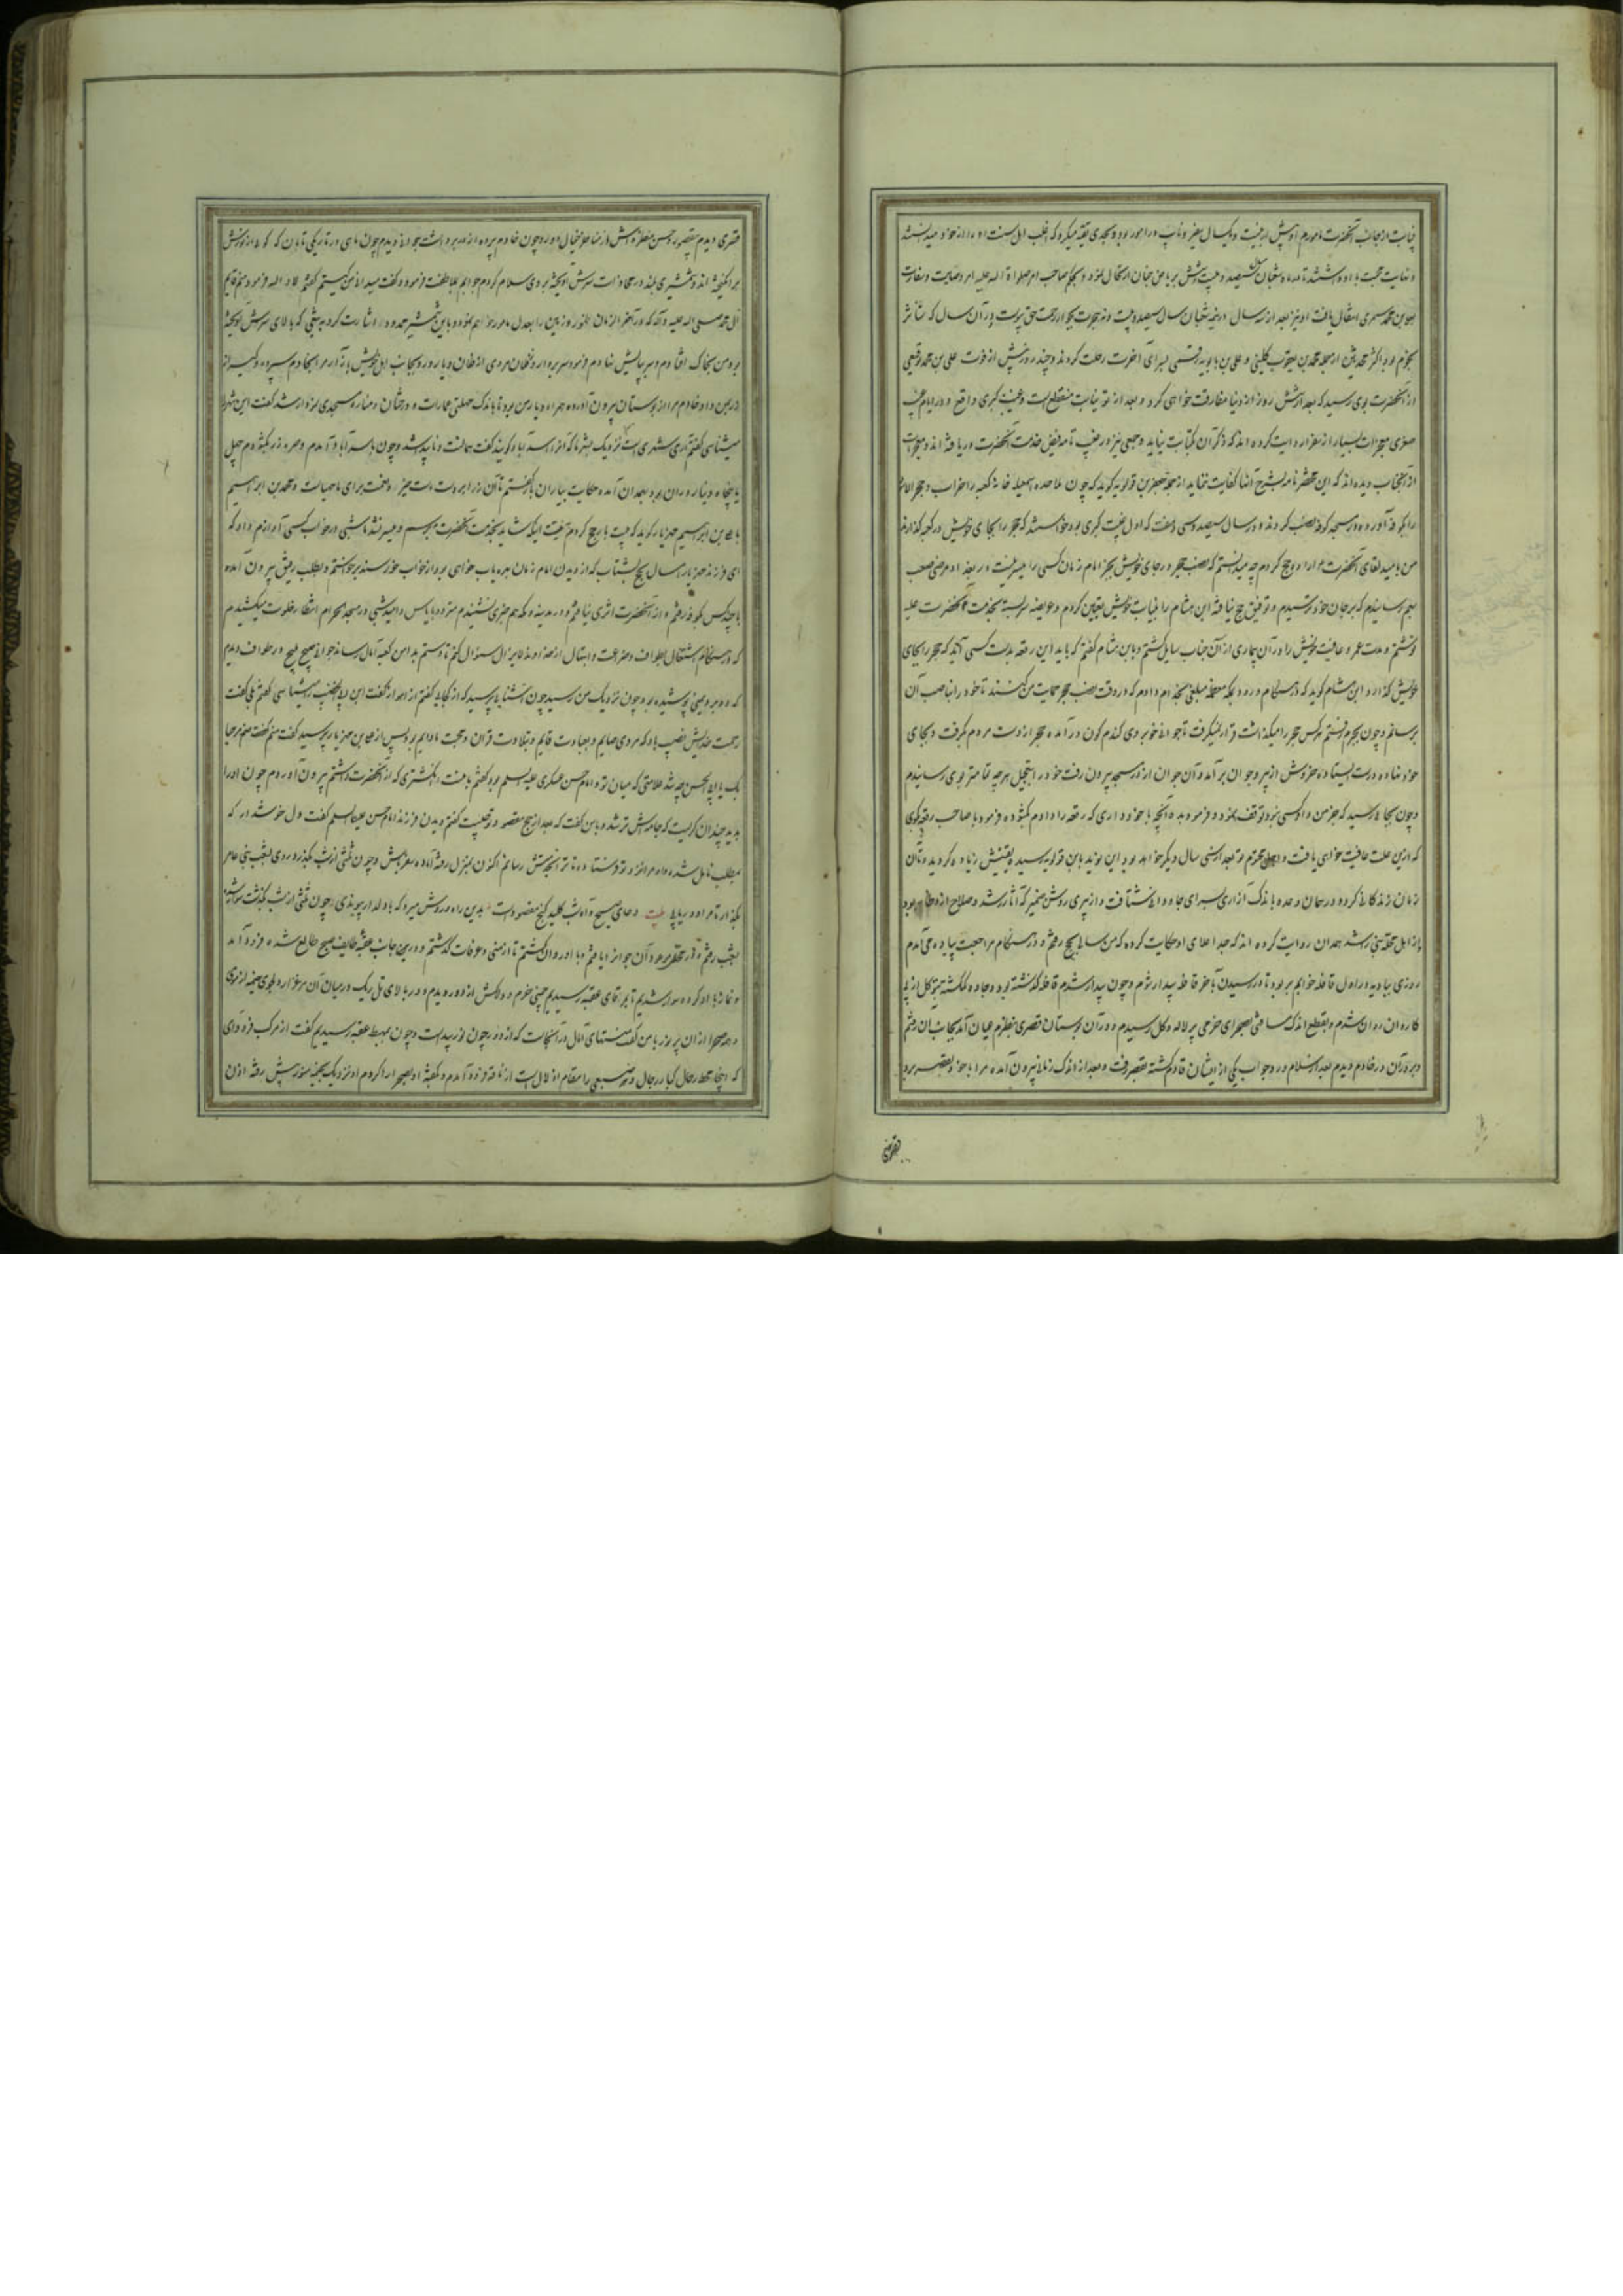 نیابت از جانب آنحضرت مامورم او بیش از بیست و یکسال سفیر و نایب در امور بود و بحدی تقیه میکرد که اغلب اهل سنت او را از خود میدانستند
و نهایت محبت با او داشتند تا در ماه شعبان سال سیصد و بیست و شش بریاض جنان ارتحال نمود و بحکم صاحب امر صلواة الله علیه امر وصایت و سفارت
بعلی بن محمد سمری انتقال یافت او نیز بعد از سه سال در نیمه شعبان سال سیصد و بیست و نه هجرت بجوار رحمت حق پیوست و در آن سال که تناثر
نجوم بود اکثر محدثین از جمله محمد بن یعقوب کلینی و علی بن بابویه قمی بسرای آخرت رحلت کردند و چند روز پیش از فوت علی بن محمد توقیعی
از آنحضرت بوی رسید که بعد از شش روز از دنیا مفارقت خواهی کرد و بعد از تو نیابت منقطع است و غیبت کبری واقع و در ایام غیبت
صغری معجزات بسیار از سفرا روایت کرده اند که ذکر آن بکتابت نیاید و جمعی نیز در غیب تامه فیض خدمت آنحضرت دریافته اند و معجزات
از آنجناب دیده اند که این مختصر نامه بشرح آنها کفایت ننماید از جمله جعفر بن قولویه گوید که چون ملاحده اسمعیلیه خانه کعبه را خراب و حجر الاسود
را بکوفه آورده در مسجد کوفه نصب کردند و در سال سیصد و سی و هفت که اول غیبت کبری بود خواستند که حجر را بجای خویش در کعبه گذارند
من بامید لقای آنحضرت اراده حج کردم چه میدانستم که نصب حجر در جای خویش بجز امام زمان کسی را میسر نیست در بغداد مرضی صعب
بهم رسانیدم که بر جان خود ترسیدم و توفیق حج نیافته ابن هشام را بنیابت خویش تعیین کردم و عریضه سربسته بخدمت آنحضرت علیه
نوشتم و مدت عمر و عافیت خویش را در آن بیماری از آن جناب سایل گشتم و بابن هشام گفتم که باید این رقعه بدست کسی آید که حجر را بجای
خویش گذارد و ابن هشام گوید که در هنگام ورود بمکه معظمه مبلغی بخدام دادم که در وقت نصب حجر حمایت من کنند تا خود را بناصب آن
برسانم و چون بحرم رفتم هر کس حجر را میگذاشت قرار نمیگرفت تا جوانی خوبروی گندم گون درآمده حجر از دست مردم بگرفت و بجای
خود نهاده درست ایستاده خروش از پیر و جوان برآمد و آن جوان از در مسجد بیرون رفت خود را بتعجیل هر چه تمامتر بوی رسانیدم
و چون بجائی رسید که جز من و او کسی نبود توقف نمود و فرمود بده آنچه با خود داری که رقعه را دادم نگشوده فرمود با صاحب رقعه گوی
که ازین علت عافیت خواهی یافت و اجل محتوم تو بعد از سی سال دیگر خواهد بود این نوید بابن قولویه رسیده یقینش زیاده گردید و تا آن
زمان زندگانی کرده و در همان وعده باندک آزاری بسرای جاودانی شتافت و از پیری روشن ضمیر که آثار رشد و صلاح ازو ظاهر بود
و از اهل محله بنی راشد همدان روایت کرده اند که جد اعلای او حکایت کرده که من سالی بحج رفتم و در هنگام مراجعت پیاده می آمدم
روزی ببادیه در اول قافله خوابم بربود تا در رسیدن بآخر قافله بیدار شوم و چون بیدار شدم قافله گذشته بود و جاده گم گشته بتوکل از پی
کاروان روان شدم و بقطع اندک مسافتی بصحرای خرمی پر لاله و گل رسیدم و در آن بوستان قصری بنظرم عیان آمد بجانب آن رفتم
و بر در آن دو خادم دیدم بعد از سلام و رد جواب یکی از ایشان قدم گشته بقصر رفت و بعد از اندک زمانی بیرون آمده مرا با خود بقصر برد
قصری
قصری دیدم حسن منظره اش و چون خادم پرده از در برداشت جوانی دیدم چون ماهی در تاریکی تابان که گویا از نورش
برانگیخته اند و شمشیری بلند در محاذات سرش آویخته بر وی سلام کردم جوابم بملاطفت فرموده گفت میدانی من کیستم گفتم لا والله فرمود منم قایم
آل محمد صلی الله علیه و آله که در آخر الزمان ظهور و زمین را بعدل مامور خواهم نمود و باین شمشیر اشارت کرد بتیغی که بالای سرش آویخته
بود من بخاک افتادم و سر بپایش نهادم فرمود سر بردار و تو فلان مردی از فلان دیار و رو بجانب اهل خویش باز آر مرا بخادم سپرده و کیسه از
زر بمن داد خادم مرا از بوستان بیرون آورده همراه و یار من بود تا باندک مهلتی عمارات و درختان و مناره مسجدی نمودار شد گفت این شهر را
میشناسی گفتم آری شهری است نزدیک بشهر ما که آنرا اسدآباد گویند گفت همانست و ناپدید شد و چون باسدآباد آمدم و صره زر بگشودم چهل
یا پنجاه دینار در آن بود بهمدان آمده حکایت بیاران باز گفتم تا آن زر از بر دست داشتیم و نعمت برای ما مهیاست و محمد بن ابراهیم
یا علی بن ابراهیم مهزیار گوید که بیست بار حج کردم به نیت اینکه شاید بخدمت آنحضرت برسم و میسر نشد تا شبی در خواب کسی آوازم داد که
ای فرزند مهزیار امسال بحج بشتاب که از دیدن امام زمان بهره یاب خواهی بود از خواب خورسند برخواستم و بطلب رفیق بیرون آمده
با چند کس بکوفه رفتم و از آنحضرت اثری نیافتم و در مدینه و مکه هم خبری نشنیدم متردد با یاس و امید شبی در مسجد الحرام انتظار خلوت میکشیدم
که در هنگام اشتغال بطواف و ضراعت و ابتهال از خداوند لایزال سئوال کنم تا دستم بدامن کعبه آمال رساند جوانی صبیح ملیح در طواف دیدم
که دو برد یمنی پوشیده بود چون نزدیک من رسید چون آشنایان پرسید که از کجائی گفتم از اهواز گفت ابن ابی الخضیب را میشناسی گفتم بلی گفت
رحمت خدایش نصیب باد که مردی صایم و بعبادت قایم و بتلاوت قران و محبت ما دایم بود پس از علی بن مهزیار پرسید گفتم منم گفت مرحبا
بک یا ابا الحسن چه شد علامتی که میان تو و امام حسن عسکری علیه السلم بود گفتم با منست انگشتری که از آنحضرت داشتم بیرون آوردم چون او را
بدید چندان گریست که جامه اش تر شد و بمن گفت که بعد از حج مقصد و توجهت چیست گفتم دیدن فرزند امام حسن علیه السلم گفت دل خوشدار که
بمطلب نایل شده و مرا نزد تو فرستاده تا ترا بخدمتش رسانم اکنون بمنزل رفته آماده سفر باش و چون ثلثی از شب بگذرد روی بشعب بنی عامر
بگذار تا مراد دریابی بیت دعای صبح و آه شب کلید گنج مقصود است بدین راه و روش میرو که با دلدار پیوندی چون ثلثی از شب بگذشت
بشعب رفتم و آن جوان را یافتم و با او روان گشتم تا از منی و عرفات گذشتم و در پیچان جانب عقبه طایف صبح طالع شده فرود آمد
و نماز با او کرده سوار شدیم تا بر اقصای عقبه رسیدیم از دور دیدم و در بالای تل ریک در میان آن مرغزار خیمه از موی
و همه صحرا از آن پر نور با من گفت منتهای آمال در آنجاست که از دور چون نور پیداست و چون بمهبط عقبه رسیدیم گفت از مرکب فرود آی
که اینجا محط رحال کبار رجال و مقام از لال است از ناقه فرود آمدم و عقبه او نزدیک بخیمه من در پیش رفته اذن